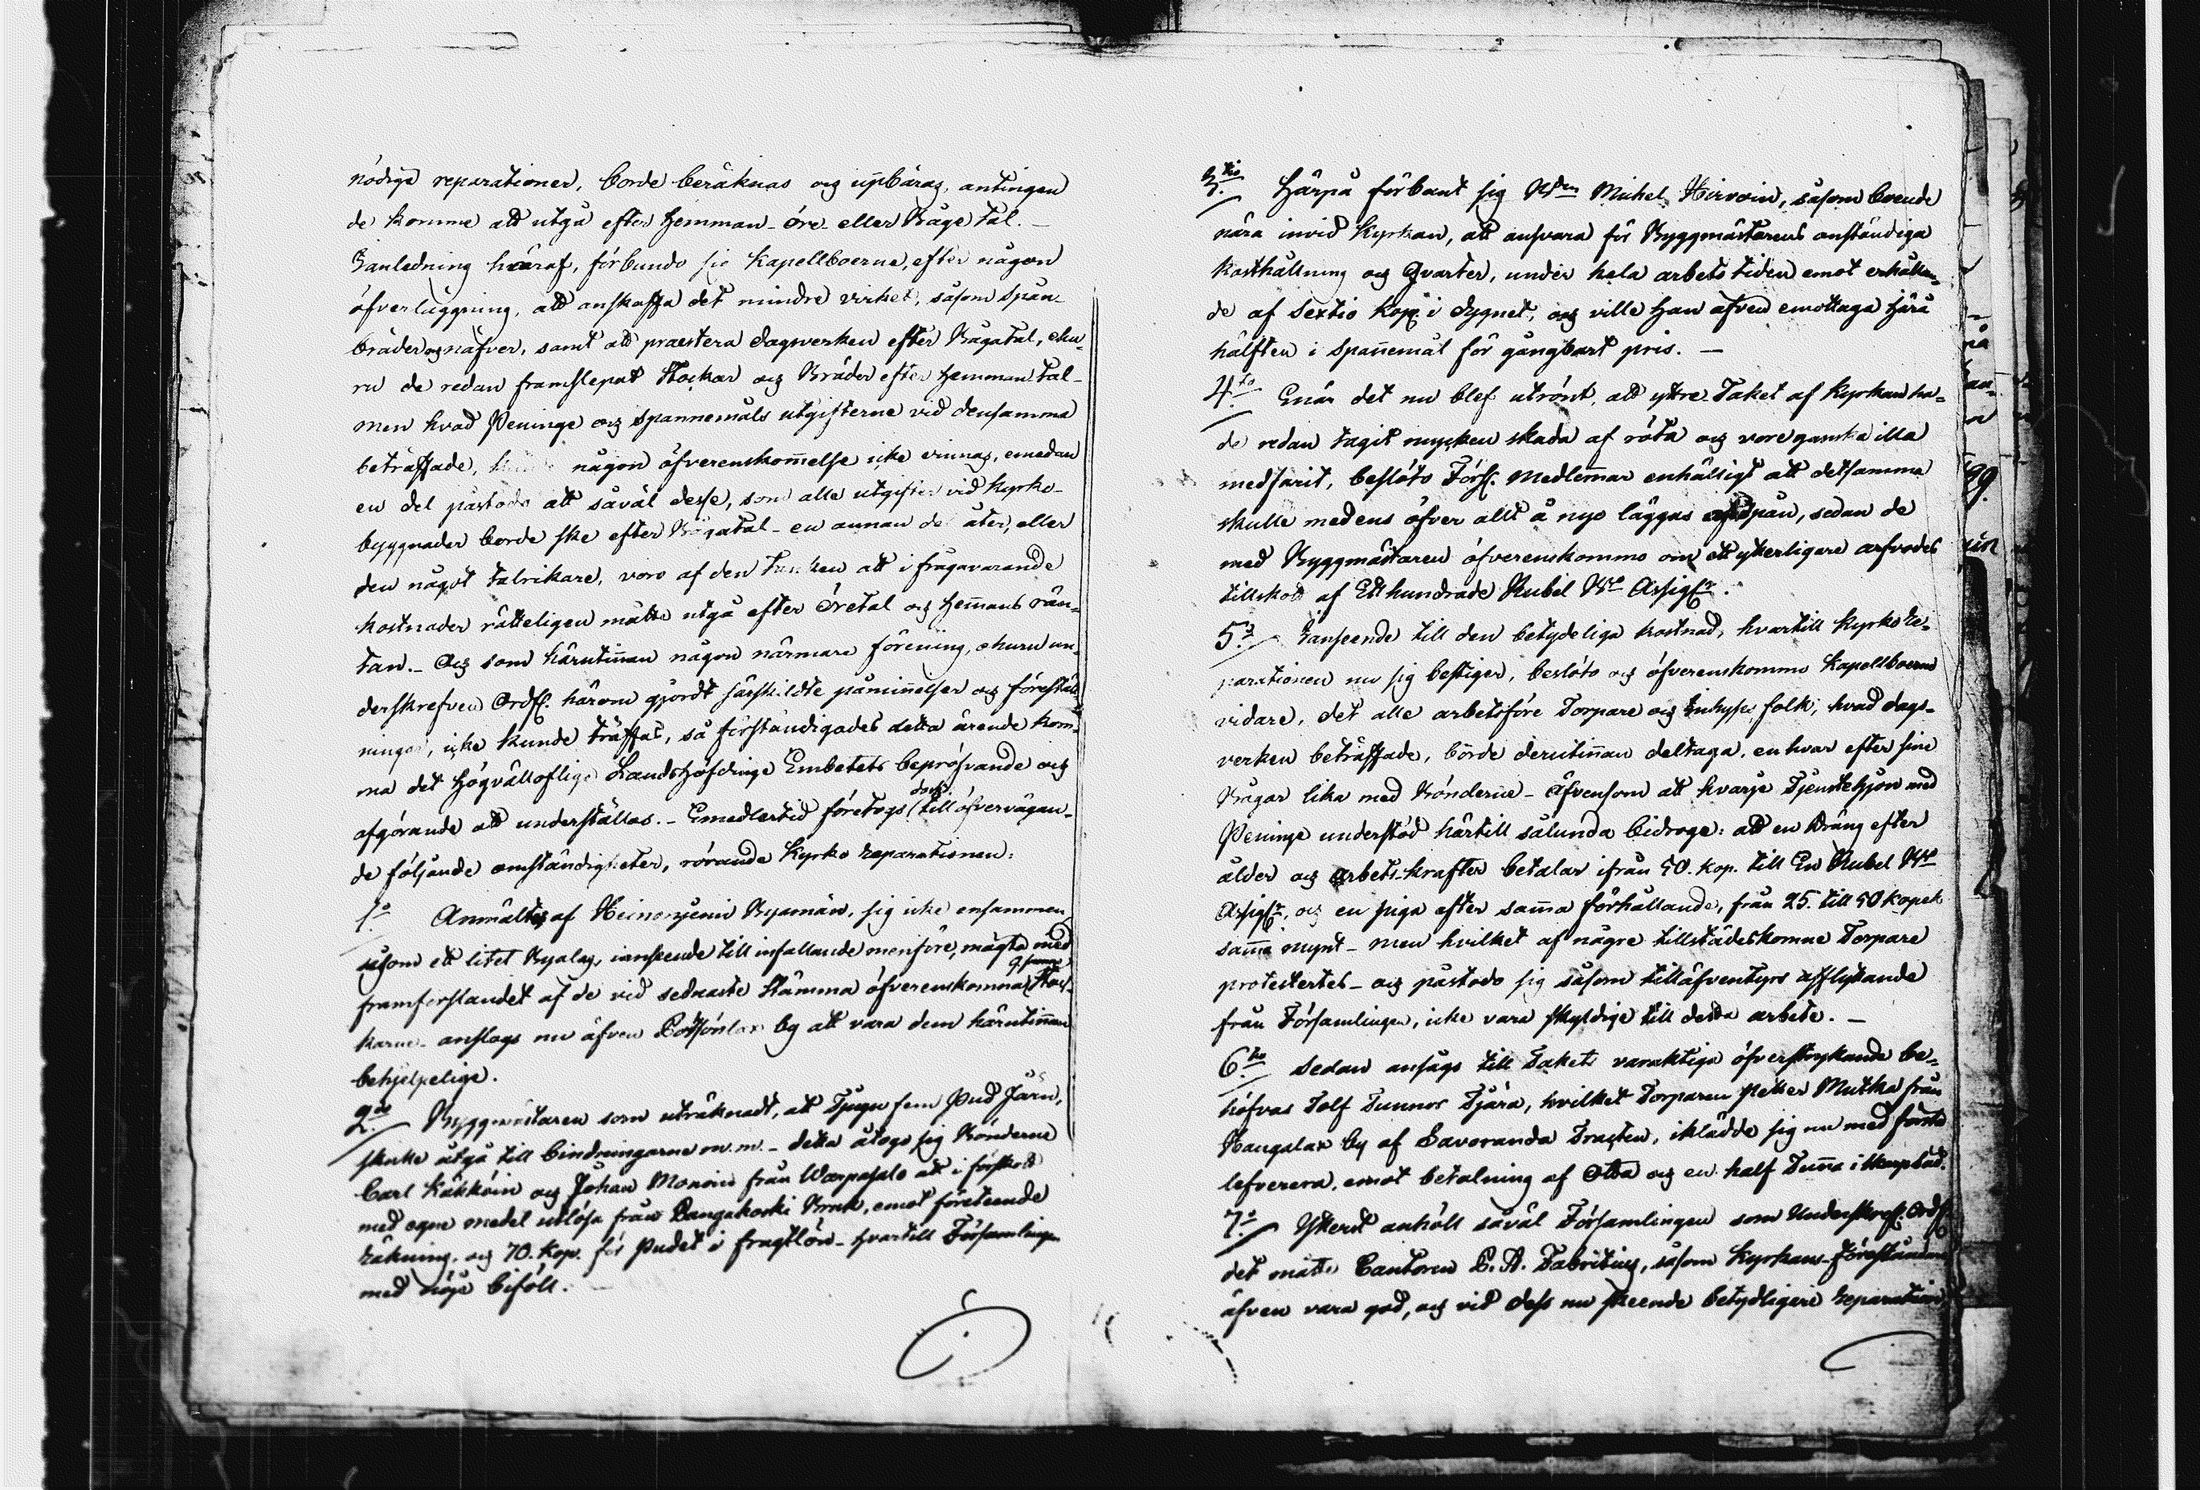 nödige reparationer, borde beräknas och uppbäras, antingen
de komme att utgå efter Hemman- öre- eller Råge tal. -
I anledning häraf, förbundo sig Kapellboerne, efter någon
öfverläggning, att anskaffa det mindre virket, såsom Spån-
bräder och näfver, samt att praestera dagsverken efter Rågatal, ehu-
ru de redan framslepat Stockar och Bräder efter Hemman tal -
men hvad Peninge och Spannemåls utgifterne vid densamma
beträffade, någon öfverenskom̅else icke ernnas, emedan
en del påstodo att såväl desse, som alle utgifter vid Kyrko-
byggnader borde ske efter Rågatal - en annan del åter, eller
den något talrikare, voro af den tanken att i frågavarande
kostnader rätteligen måtte utgå efter Öretal och Hem̅ans rän-
tan. - Och som härutin̅an någon närmare förening, ehuru un-
derskrefven Ordf. härom gjordt särskildte påmin̅elser och föreställ-
ningar, icke kunde träffas, så förständigades detta ärende kom-
ma det Högvällofliga Landshöfdinge Embetets bepröfvande och
afgörande att underställas. - Emedlertid företogs (dock till öfvervägan-
de följande omständigheter, rörande Kyrko reparationen:
1:o Anmältes af Heinonjemi Byamän, sig icke ensammen
såsom ett litet Byalag, i anseende till infallande menföre, mägta med
framforslandet af de vid sednaste Stämma öfverenskomna Stoc-
karne - anslogs nu äfven by att vara dem härutin̅an
behjelpelige.
2:do Byggmästaren som uträknadt, att Tjugu fem Pud Järn,
skulle åtgå till bindningarne m. m. - detta åtogo sig Bönderne
Carl Käkköin och Johan Mononen från Warpasalo att i förskott
med egne medel utlösa från Pangakoski Bruk, emot företeende
räkning, och 70. Kop. för Pudet i fragtlön - hvartill Församlingen
med nöje biföll.
3:tio Härpå förbant sig Bdn Michel Hirvoin, såsom boende
nära invid Kyrkan, att ansvara för Byggmästarens anständiga
kosthållning och Qvarter, under hela arbets tiden emot erhållan-
de af Sextio Kop. i dygnet, och ville han äfven emottaga häri
hälften i Span̅emål för gångbart pris. -
4:to Enär det nu blef utrönt, att yttre Taket af Kyrkan ha-
de redan tagit mycken skada af röta och vore ganska illa
medfarit, beslöto Förs. Medlem̅ar enhälligt att detsamma
skulle medens öfver allt å nyo läggas af spån, sedan de
med Byggmästaren öfverenskommo om ett ytterligare arfvodes
tillskott af Ett hundrade Rubel B:co Assign:r.
5:o I anseende till den betydeliga kostnad, hvartill Kyrko re-
parationen nu sig bestiger, beslöto och öfverenskommo Kapellboerne
vidare, det alle arbetsföre Torpare och Inhyses folk, hvad dags-
verken beträffade, borde derutin̅an deltaga, en hvar efter sine
Rågar lika med Bönderne - äfvensom att hvarje Tjenstehjon med
Peninge understöd härtill sålunda bidroge: att en Dräng efter
ålder och arbets-krafter betalar ifrån 50. kop. till En Rubel B:co
Assign:r, och en piga efter sam̅a förhållande, från 25. till 50 kopek
sam̅a mynt - men hvilket af någre tillstädeskomne Torpare
protestertes - och påstodo sig såsom tilläfventyrs afflytande
från Församlingen, icke vara skyldige till detta arbete. -
6:to Sedan ansågs till Takets varaktiga öfverstrykande be-
höfvas Tolf Tunnor Tjära, hvilket Torparen Petter Mutka från
Kangaslax by af Savoranda Tragten, iklädde sig nu med första
lefverera, emot betalning af Otta och en half Tun̅a i
7:o Ytterst anhöll såväl Församlingen som Underskref. Ordf.
det måtte Cantoren P. A. Fabritius, såsom Kyrkans Föreståndare
äfven vara god, och vid dess nu skeende betydligere reparation